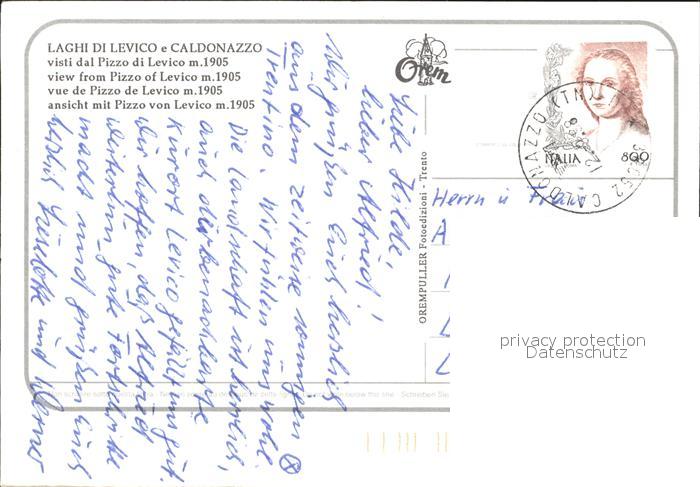 LAGHI DI LEVICO e CALDONAZZO
visti dal Pizzo di Levico m.1905
view from Pizzo of Levico m.1905
vue de Pizzo de Levico m.1905
ansicht mit Pizzo von Levico m.1905
Orem
OREMPULLER Fotoedizioni - Trento
ITALIA 800
38052 CALDONAZZO (TN)
Herrn u Frau
privacy protection
Datenschutz
Liebe Hilde,
lieber Alfred!
Wir grüßen Euch herzlich
aus dem zeitweise sonnigen
Trentino. Wir fühlen uns wohl.
Die Landschaft ist herrlich,
auch der benachbarte
Kurort Levico gefällt uns gut.
Wir hoffen, daß Alfred
weiterhin gute Fortschritte
macht und grüßen Euch
herzlich Liselotte und Werner